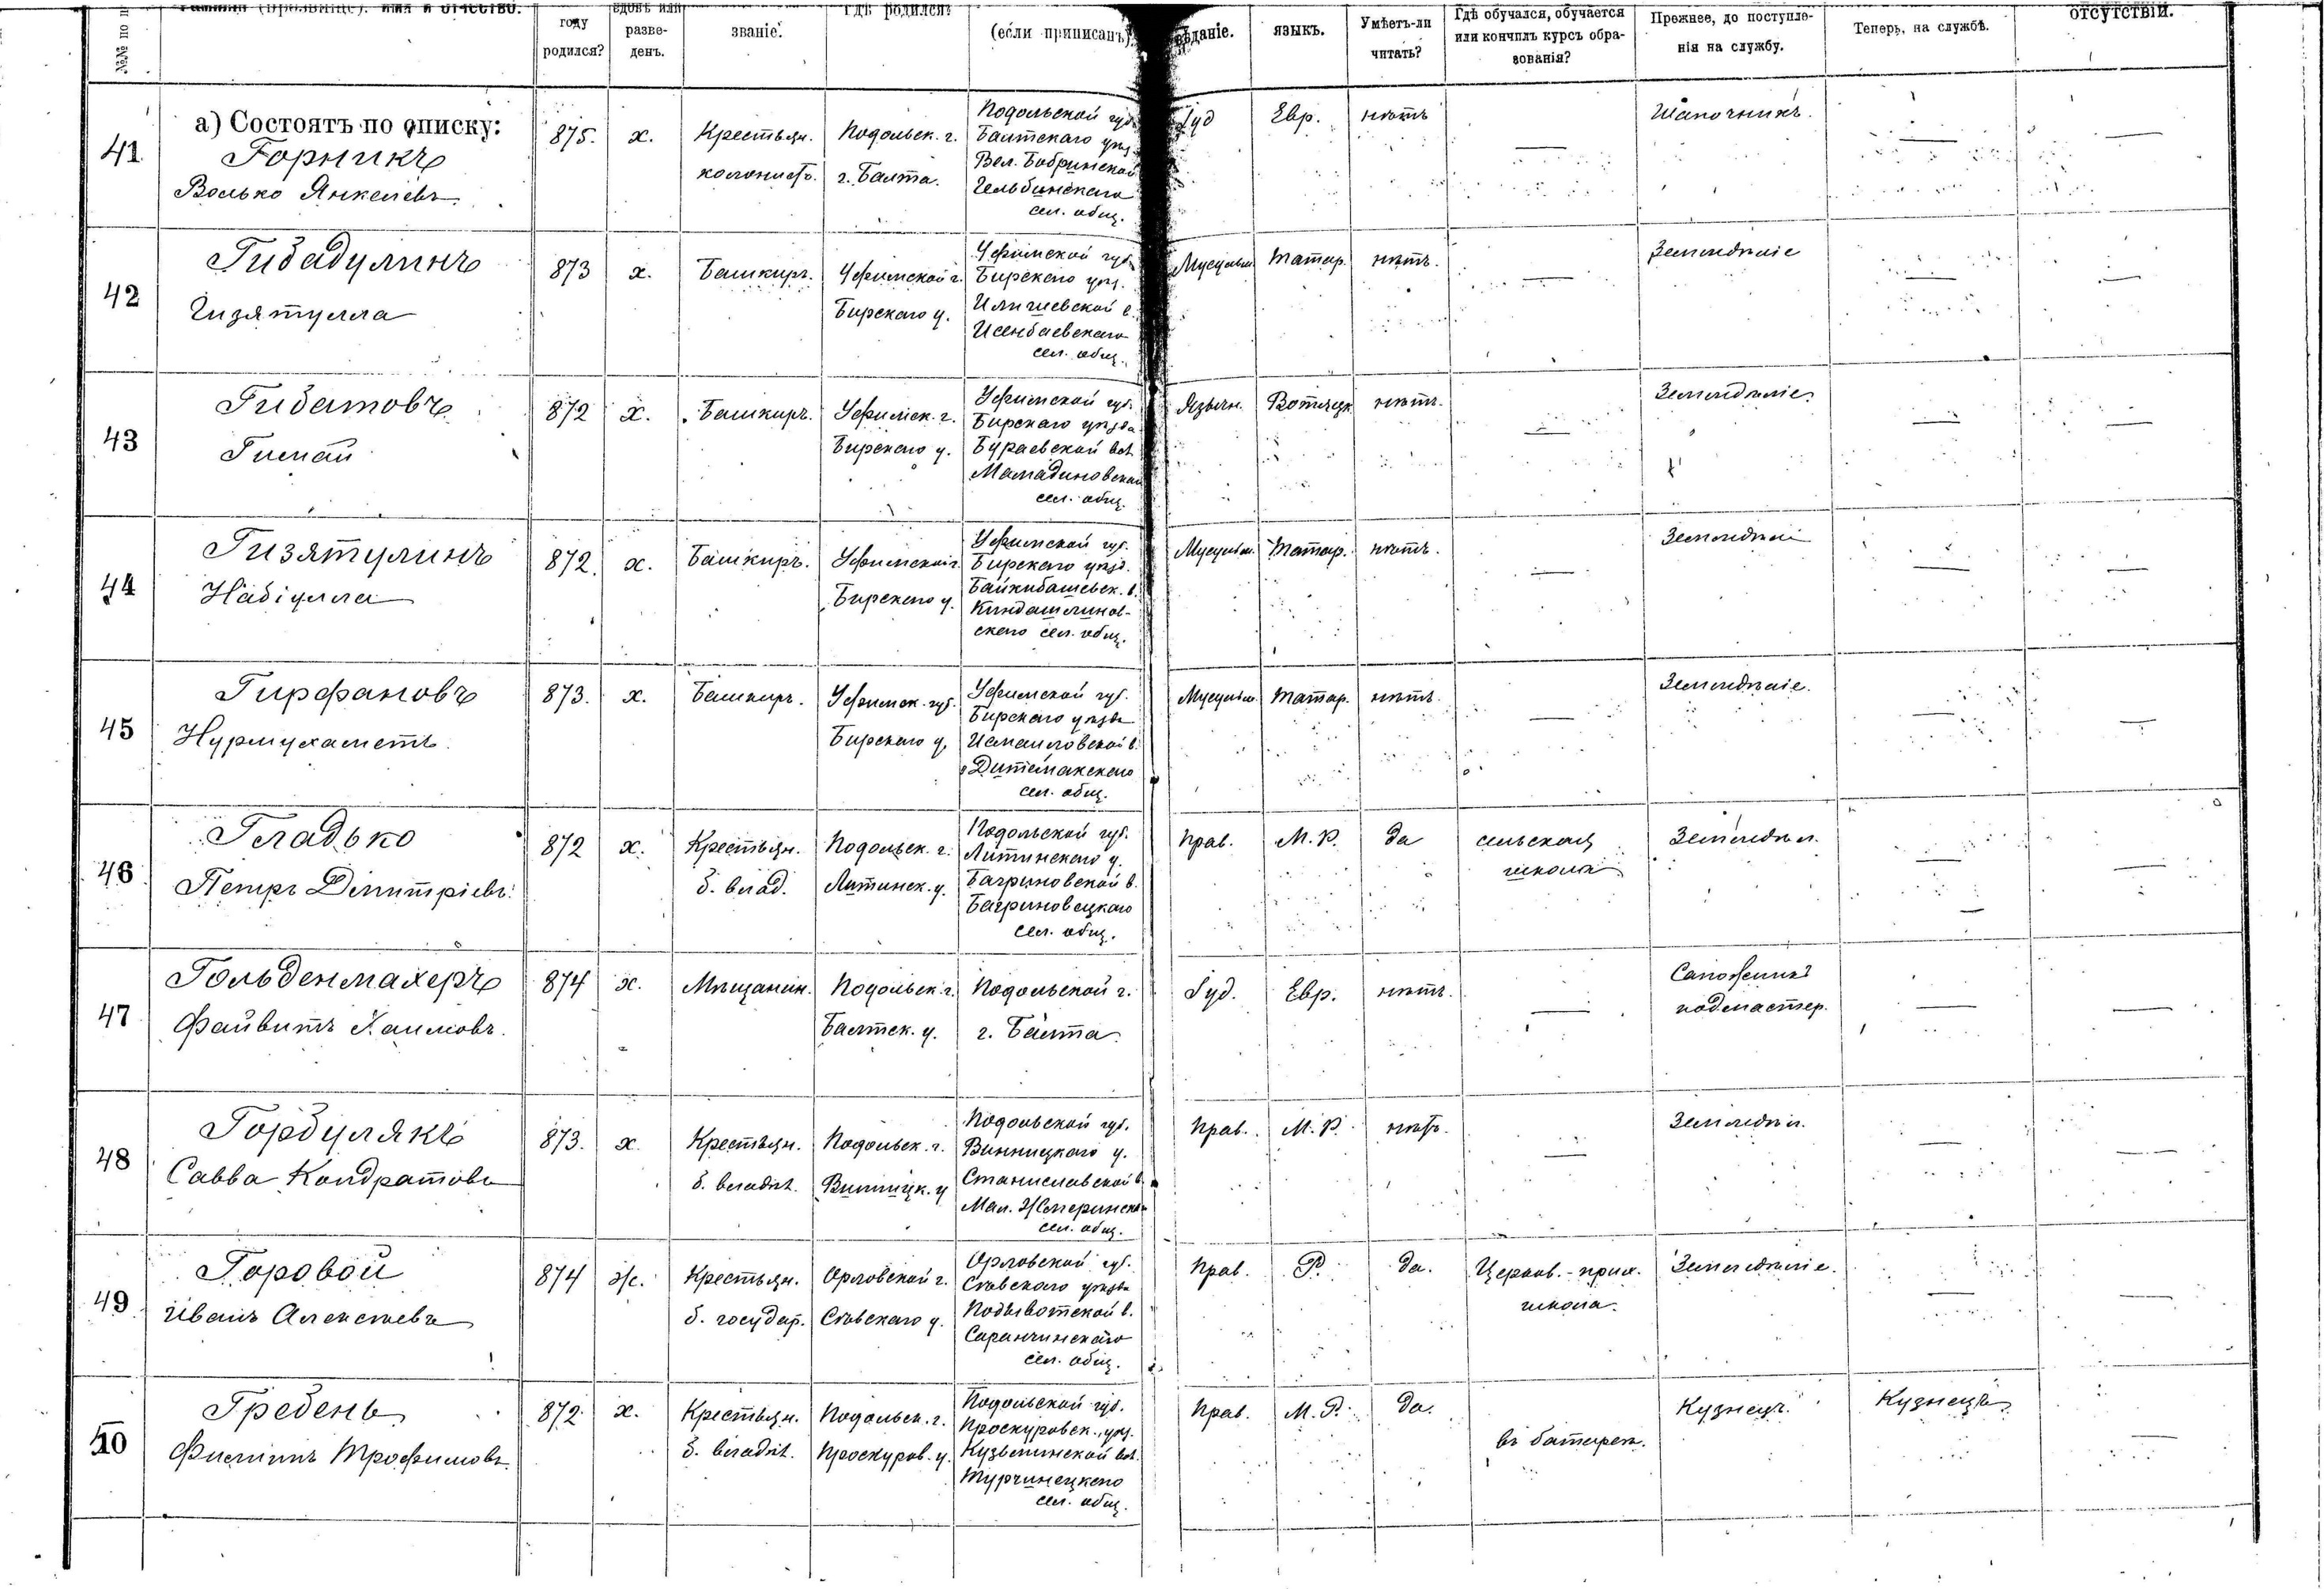 №№ по п
Фамилія (прозвище), имя и отчество.
году родился?
вдовъ или разве-денъ.
званіе.
Гдѣ родился
(если приписанъ)
языкъ.
Умѣетъ-ли читать?
Гдѣ обучался, обучается или кончилъ курсъ обра-зованія?
Прежнее, до поступле-нія на службу.
Теперь, на службѣ.
отсутствіи.
а) Состоятъ по списку:
41 Горникъ 875. х. Крестьян. Подольск. г. Подольской губ. Іуд Евр. нѣтъ — Шапочникъ. — —
Волько Янкелевъ колонистъ. г. Балта. Балтскаго уѣз.
Вел. Бобринской
сел. общ.
42 Гибадулинъ 873 х. Башкиръ. Уфимской г. Уфимской губ. Мусульм. Татар. нѣтъ. — Земледѣліе — —
Гизятулла Бирскаго у. Бирскаго уѣз.
Исенбаевскаго
сел. общ.
43 Гибатовъ 872 х. Башкиръ. Уфимск. г. Уфимской губ. Язычн. Вотяцк. нѣтъ. — Земледѣліе. — —
Гинай Бирскаго у. Бирскаго уѣзда
Бураевской вол.
сел. общ.
44 Гизятулинъ 872. х. Башкиръ. Уфимской г. Уфимской губ. Мусульм. Татар. нѣтъ. — Земледѣліе — —
Набіулла Бирскаго у. Бирскаго уѣзд.
Байкибашевск. в.
Киндашлинов-
скаго сел. общ.
45 Гирфановъ 873. х. Башкиръ. Уфимск. губ. Уфимской губ. Мусульм. Татар. нѣтъ. — Земледѣліе. — —
Нурмухаметъ. Бирскаго у. Бирскаго уѣзда
Исмаиловской в.
сел. общ.
46 Гладько 872 х. Крестьян. Подольск. г. Подольской губ. Прав. М. Р. да сельская Земледѣл. — —
Петръ Дмитріевъ. б. влад. Литинск. у. Литинскаго у. школа
Багриновской в.
Багриновецкаго
сел. общ.
47 Гольденмахеръ 874 х. Мѣщанин. Подольск. г. Подольской г. Іуд. Евр. нѣтъ. — Сапожникъ — —
Файвитъ Хаимовъ. Балтск. у. г. Балта. подмастер.
48 Гордулякъ 873. х. Крестьян. Подольск. г. Подольской губ. Прав. М. Р. нѣтъ. — Земледѣл. — —
Савва Кондратовъ б. владѣл. Винницк. у. Винницкаго у.
Станиславской в.
сел. общ.
49 Горовой 874 ж. Крестьян. Орловской г. Орловской губ. Прав. Р. да. Церков.-прих. Земледѣліе. — —
Иванъ Алексѣевъ б. государ. Сѣвскаго у. Сѣвскаго уѣзда школа.
Подывотской в.
Саранчинскаго
сел. общ.
50 Гребень 872. х. Крестьян. Подольск. г. Подольской губ. Прав. М. Р. да. въ батареѣ. Кузнецъ. Кузнецъ —
Филиппъ Трофимовъ. б. владѣл. Проскуров. у. Проскуровск. уѣз.
Кузьминской вол.
Турчинецкаго
сел. общ.